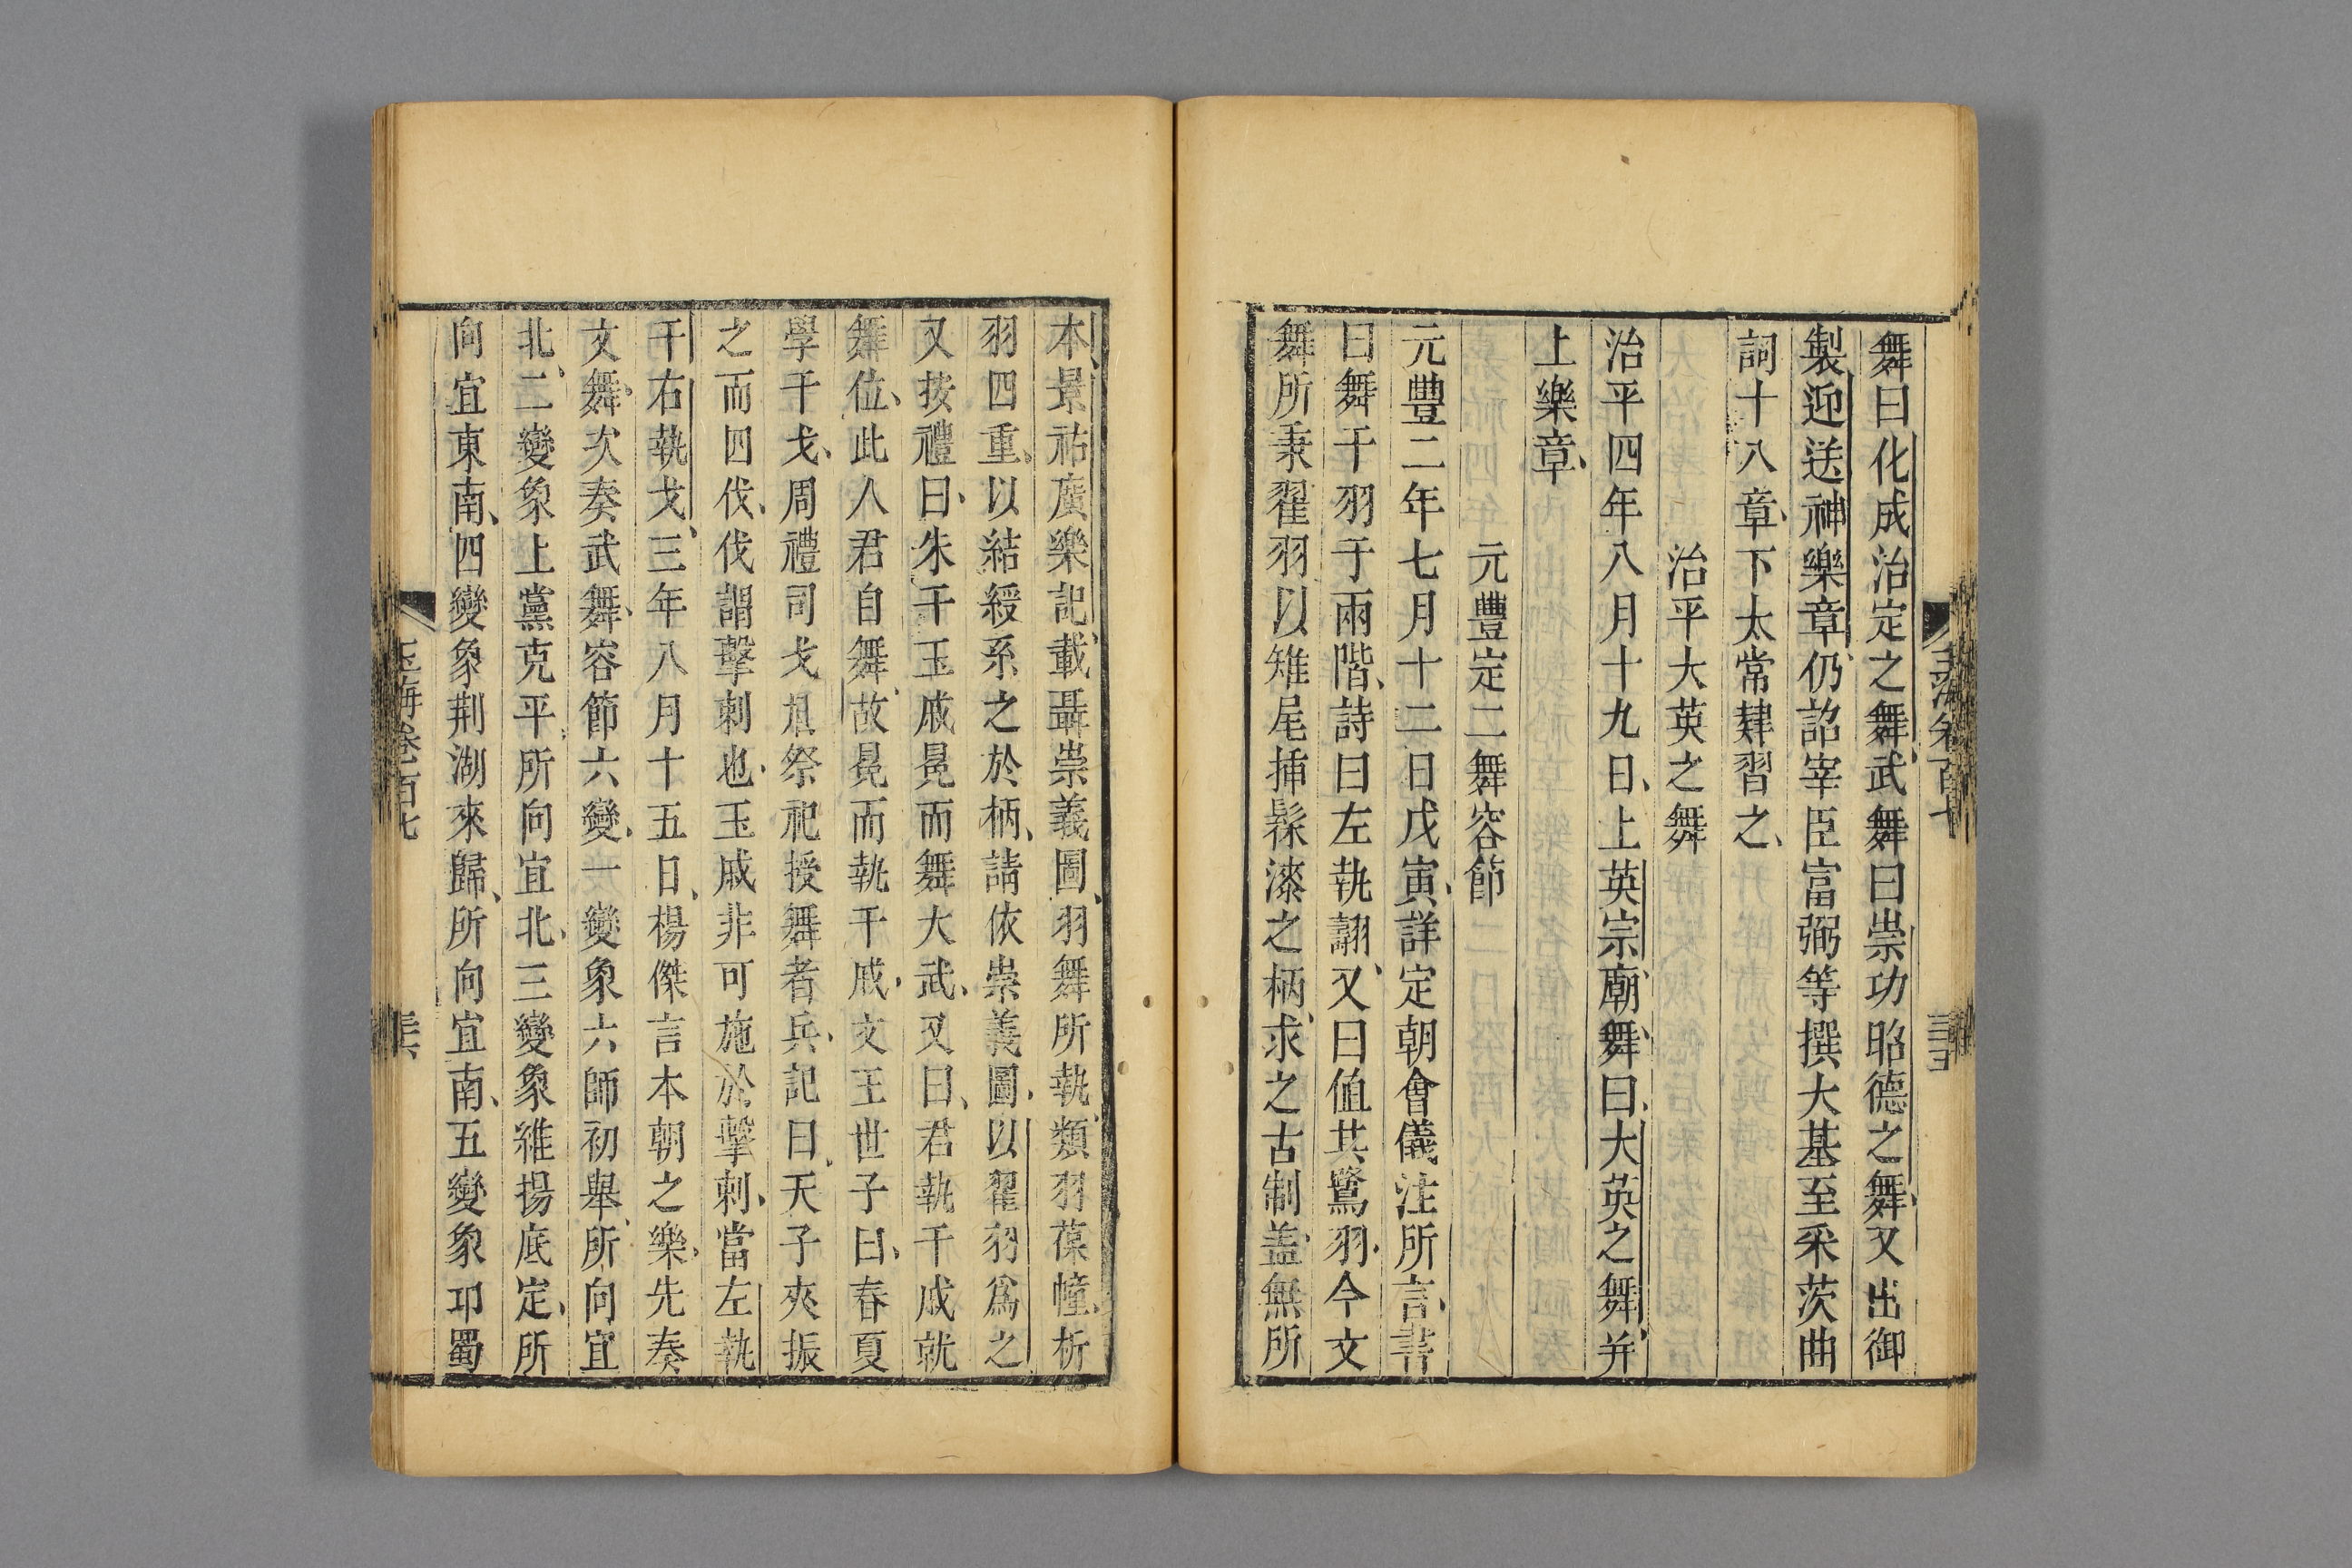 舞曰化成治定之舞武舞曰崇功昭德之舞又出御
製迎送神樂章仍詔宰臣富弼等撰大基至采茨曲
詞十八章下太常肄習之
治平大英之舞
治平四年八月十九日上英宗廟舞曰大英之舞并
上樂章
元豐定二舞容節
元豐二年七月十二日戊寅詳定朝會儀注所言書
曰舞干羽于兩階詩曰左執翿又曰值其鷺羽今文
舞所秉翟羽以雉尾揷髹漆之柄求之古制蓋無所
本景祐廣樂記載聶崇義圖羽舞所執類羽葆幢析
羽四重以結綬系之於柄請依崇義圖以翟羽爲之
又按禮曰朱干玉戚冕而舞大武又曰君執干戚就
舞位此人君自舞故冕而執干戚文王世子曰春夏
學干戈周禮司戈盾祭祀授舞者兵記曰天子夾振
之而四伐伐謂擊刺也玉戚非可施於擊刺當左執
干右執戈三年八月十五日楊傑言本朝之樂先奏
文舞次奏武舞容節六變一變象六師初舉所向宜
北二變象上黨克平所向宜北三變象維揚底定所
向宜東南四變象荆湖來歸所向宜南五變象卭蜀
玉海卷百七